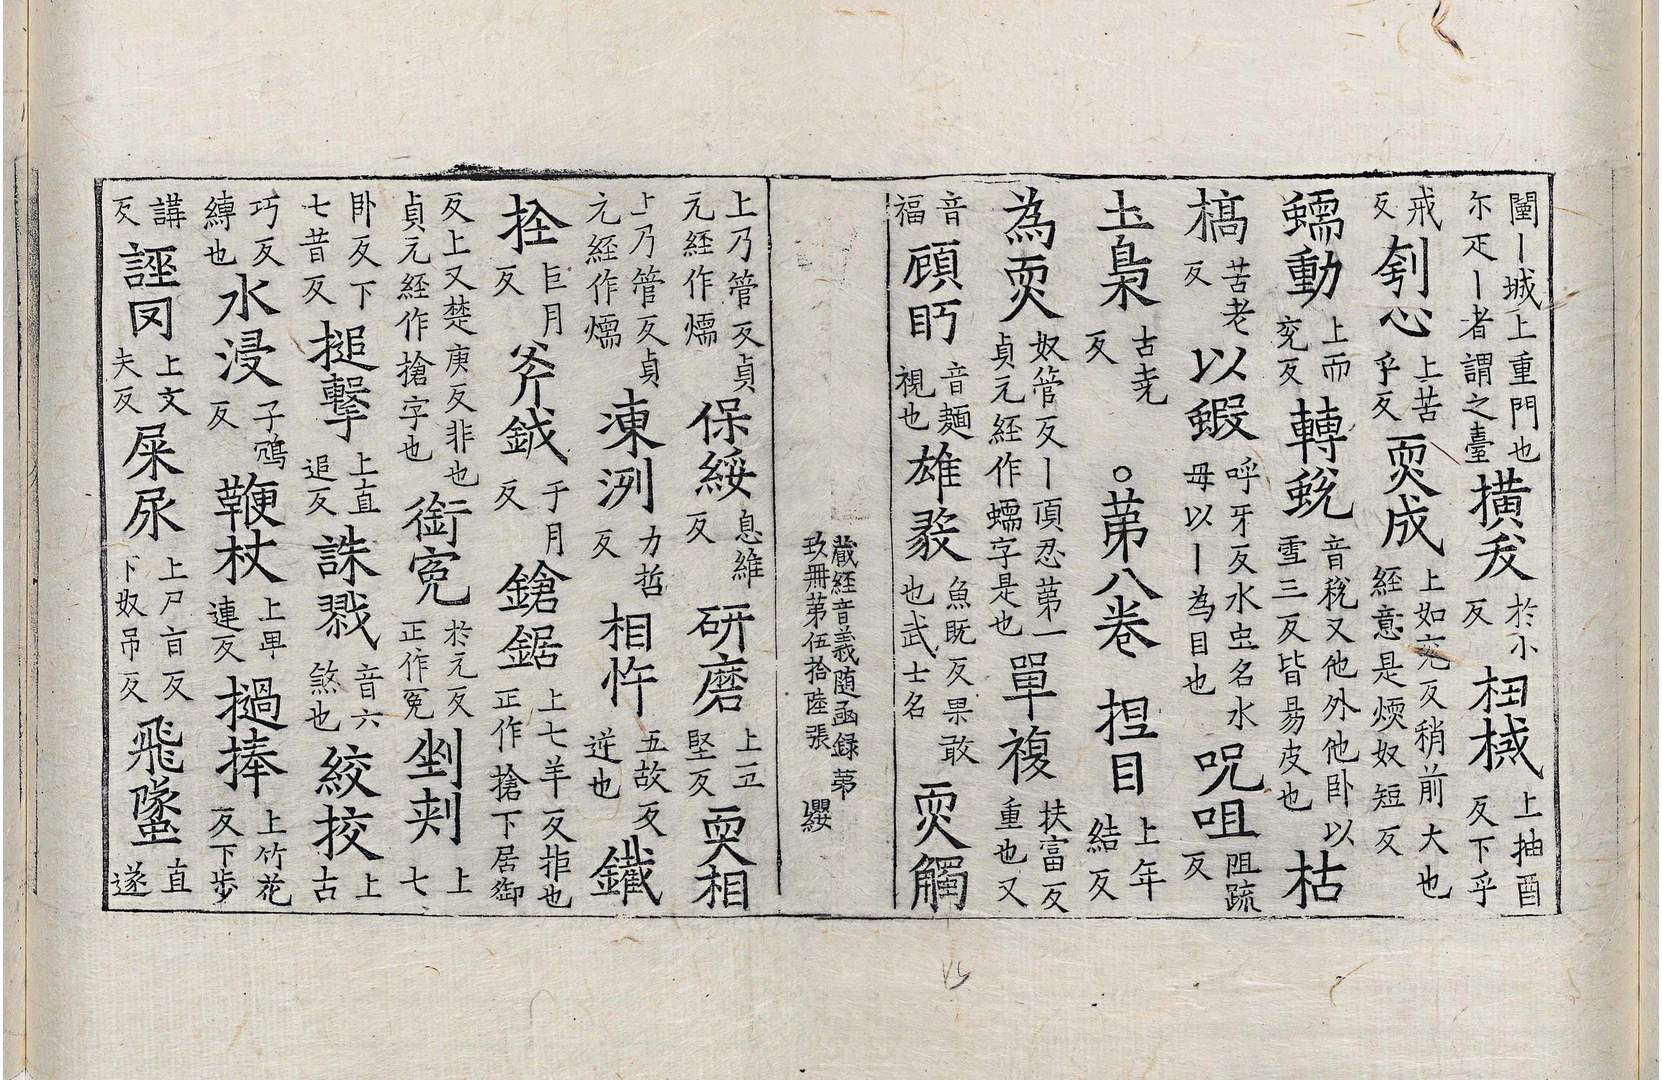 闉丨城上重門也尒疋丨者謂之臺橫㚣於小反杻械上抽酉反下乎
戒反刳心上苦乎反耎成上如兖反稍前大也經意是煗奴短反
蠕動上而兖反轉蛻音稅又他外他卧以雪三反皆昜皮也枯
槁苦老反以蝦呼牙反水虫名水母以丨為目也呪咀阻疏反
土梟古尭反○苐八卷揑目上年結反
為耎奴管反丨頂忍苐一貞元經作蠕字是也單複扶富反重也又
音福頋眄音麵視也雄毅魚既反果敢也武士名耎觸
藏經音義随函録苐玖冊苐伍拾陸張 纓
上乃管反貞元經作燸保綏息維反研磨上五堅反耎相
上乃管反貞元經作燸凍冽力哲反相忤五故反逆也鐵
拴巨月反斧鉞于月反鎗鋸上七羊反拒也正作搶下居御
反上又楚庚反非也貞元經作搶字也銜寃扵元反正作冤剉㓨上七
卧反下七昔反搥擊上直追反誅戮音六煞也絞挍上古
巧反縛也水浸子鴆反鞭杖上卑連反撾捧上竹花反下步
講反誣罔上文夫反屎尿上尸旨反下奴吊反飛墜直遂